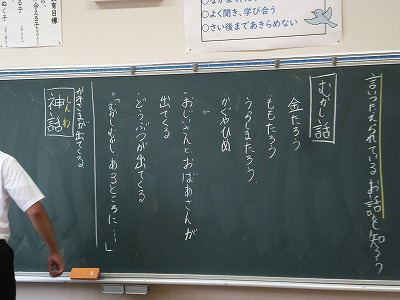 言いつたえられているお話を知ろう
むかし話
金たろう
ももたろう
うらしまたろう
かぐやひめ
おじいさんとおばあさんが
出てくる
どうぶつが出てくる
「むかしむかしあるところに…」
神話
しんわ
かみさまが出てくる
○よく聞き、学び合う
○さい後まであきらめない